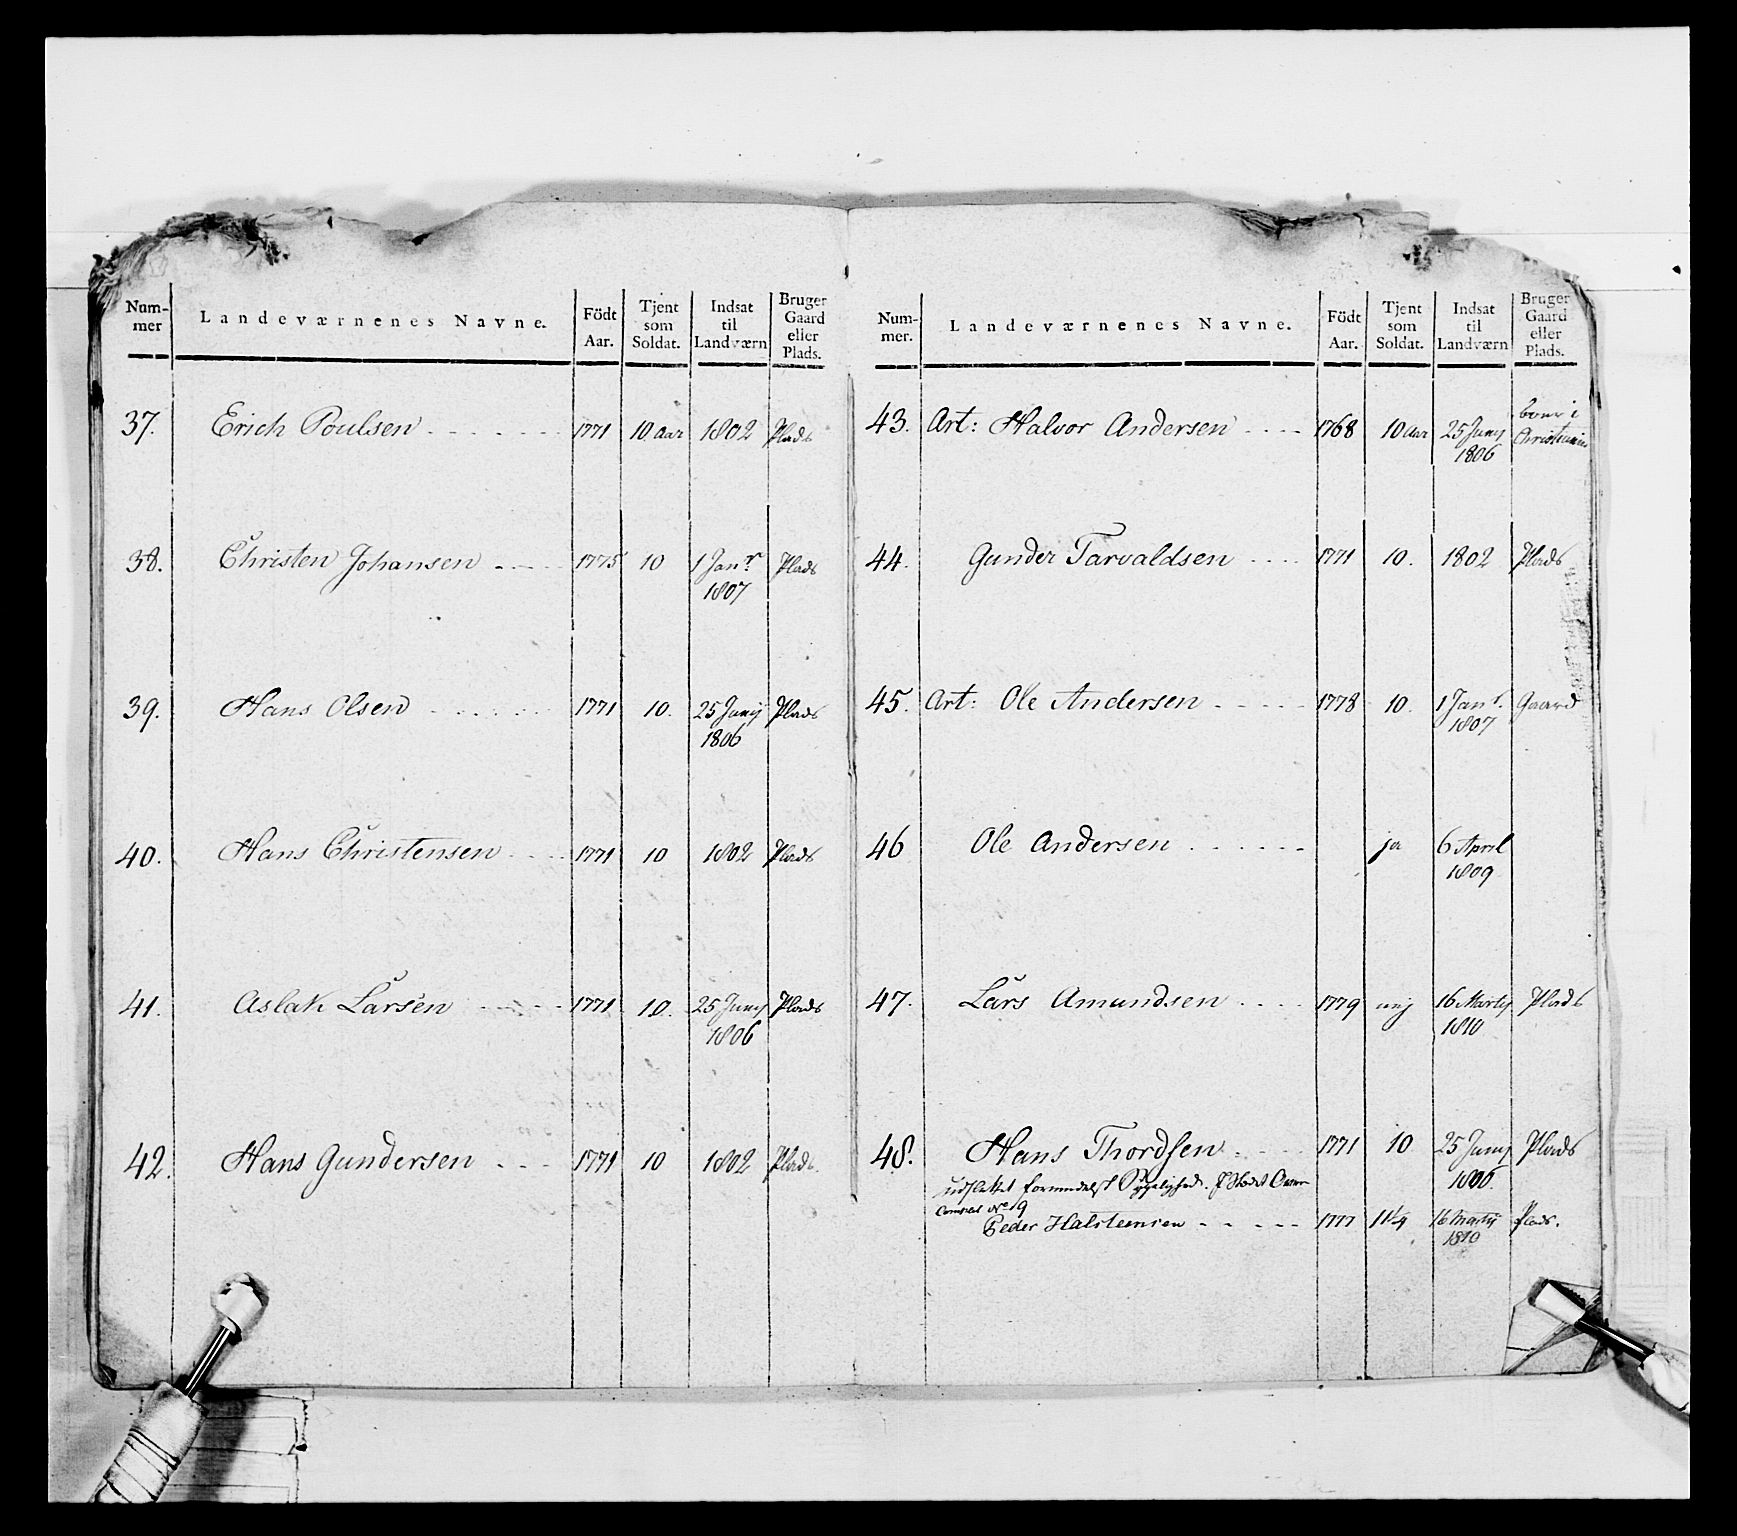 Num-
mer
Landeværnenes Navne.
Födt
Aar.
Tjent
som
Soldat.
Indsat
til
Landværn
Bruger
Gaard
eller
Plads.
37. Erich Poulsen 1771 10 Aar 1802 Plads
38. Christen Johansen 1775 10 1 Janr Plads
1807
39. Hans Olsen 1771 10. 25 Junij Plads
1806
40. Hans Christensen 1771 10 1802 Plads
41. Aslak Larsen 1771 10. 25 Junij Plads
1806
42. Hans Gundersen 1771 10 1802 Plads.
Num-
mer.
Landeværnenes Navne.
Födt
Aar.
Tjent
som
Soldat.
Indsat
til
Landværn
Bruger
Gaard
eller
Plads.
43. Art: Halvor Andersen 1768 10 Aar 25 Junij
1806
i
Christiania
44. Gunder Tarvaldsen 1771 10. 1802 Plads
45. Art: Ole Andersen 1778 10. 1 Janr. Gaard
1807
46 Ole Andersen ja 6 April
1809
47. Lars Amundsen 1779 nej 16 Martij Plads
1810
48. Hans Thordsen 1771 10 25 Junij Plads
1806.
udslettet formedelst Sygelighed.
No 9
Peder Halsteensen 1777 11¼ 16 Martij Plads.
1810